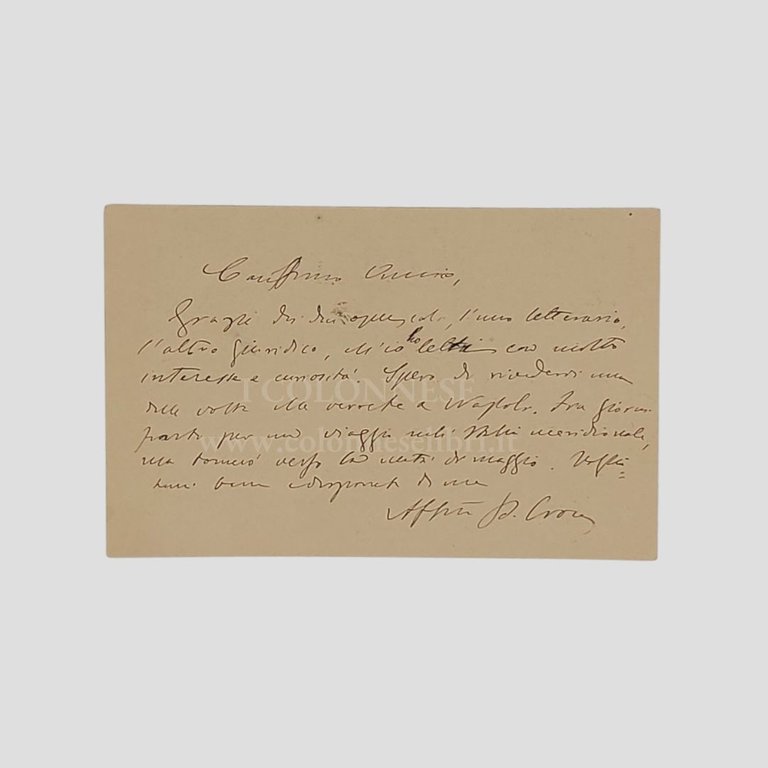 Carissimo Amico,
Grazie dei due opuscoli, l'uno letterario,
l'altro giuridico, ch'io ho letti con molto
interesse e curiosità. Spero di rivedervi una
delle volte che verrete a Napoli. Fra giorni
parto per un viaggio nell'Italia meridionale,
ma tornerò verso la metà di maggio. Voglia-
temi bene e disponete di me
Aff.mo B. Croce
I COLONNESE
www.colonneselibri.it